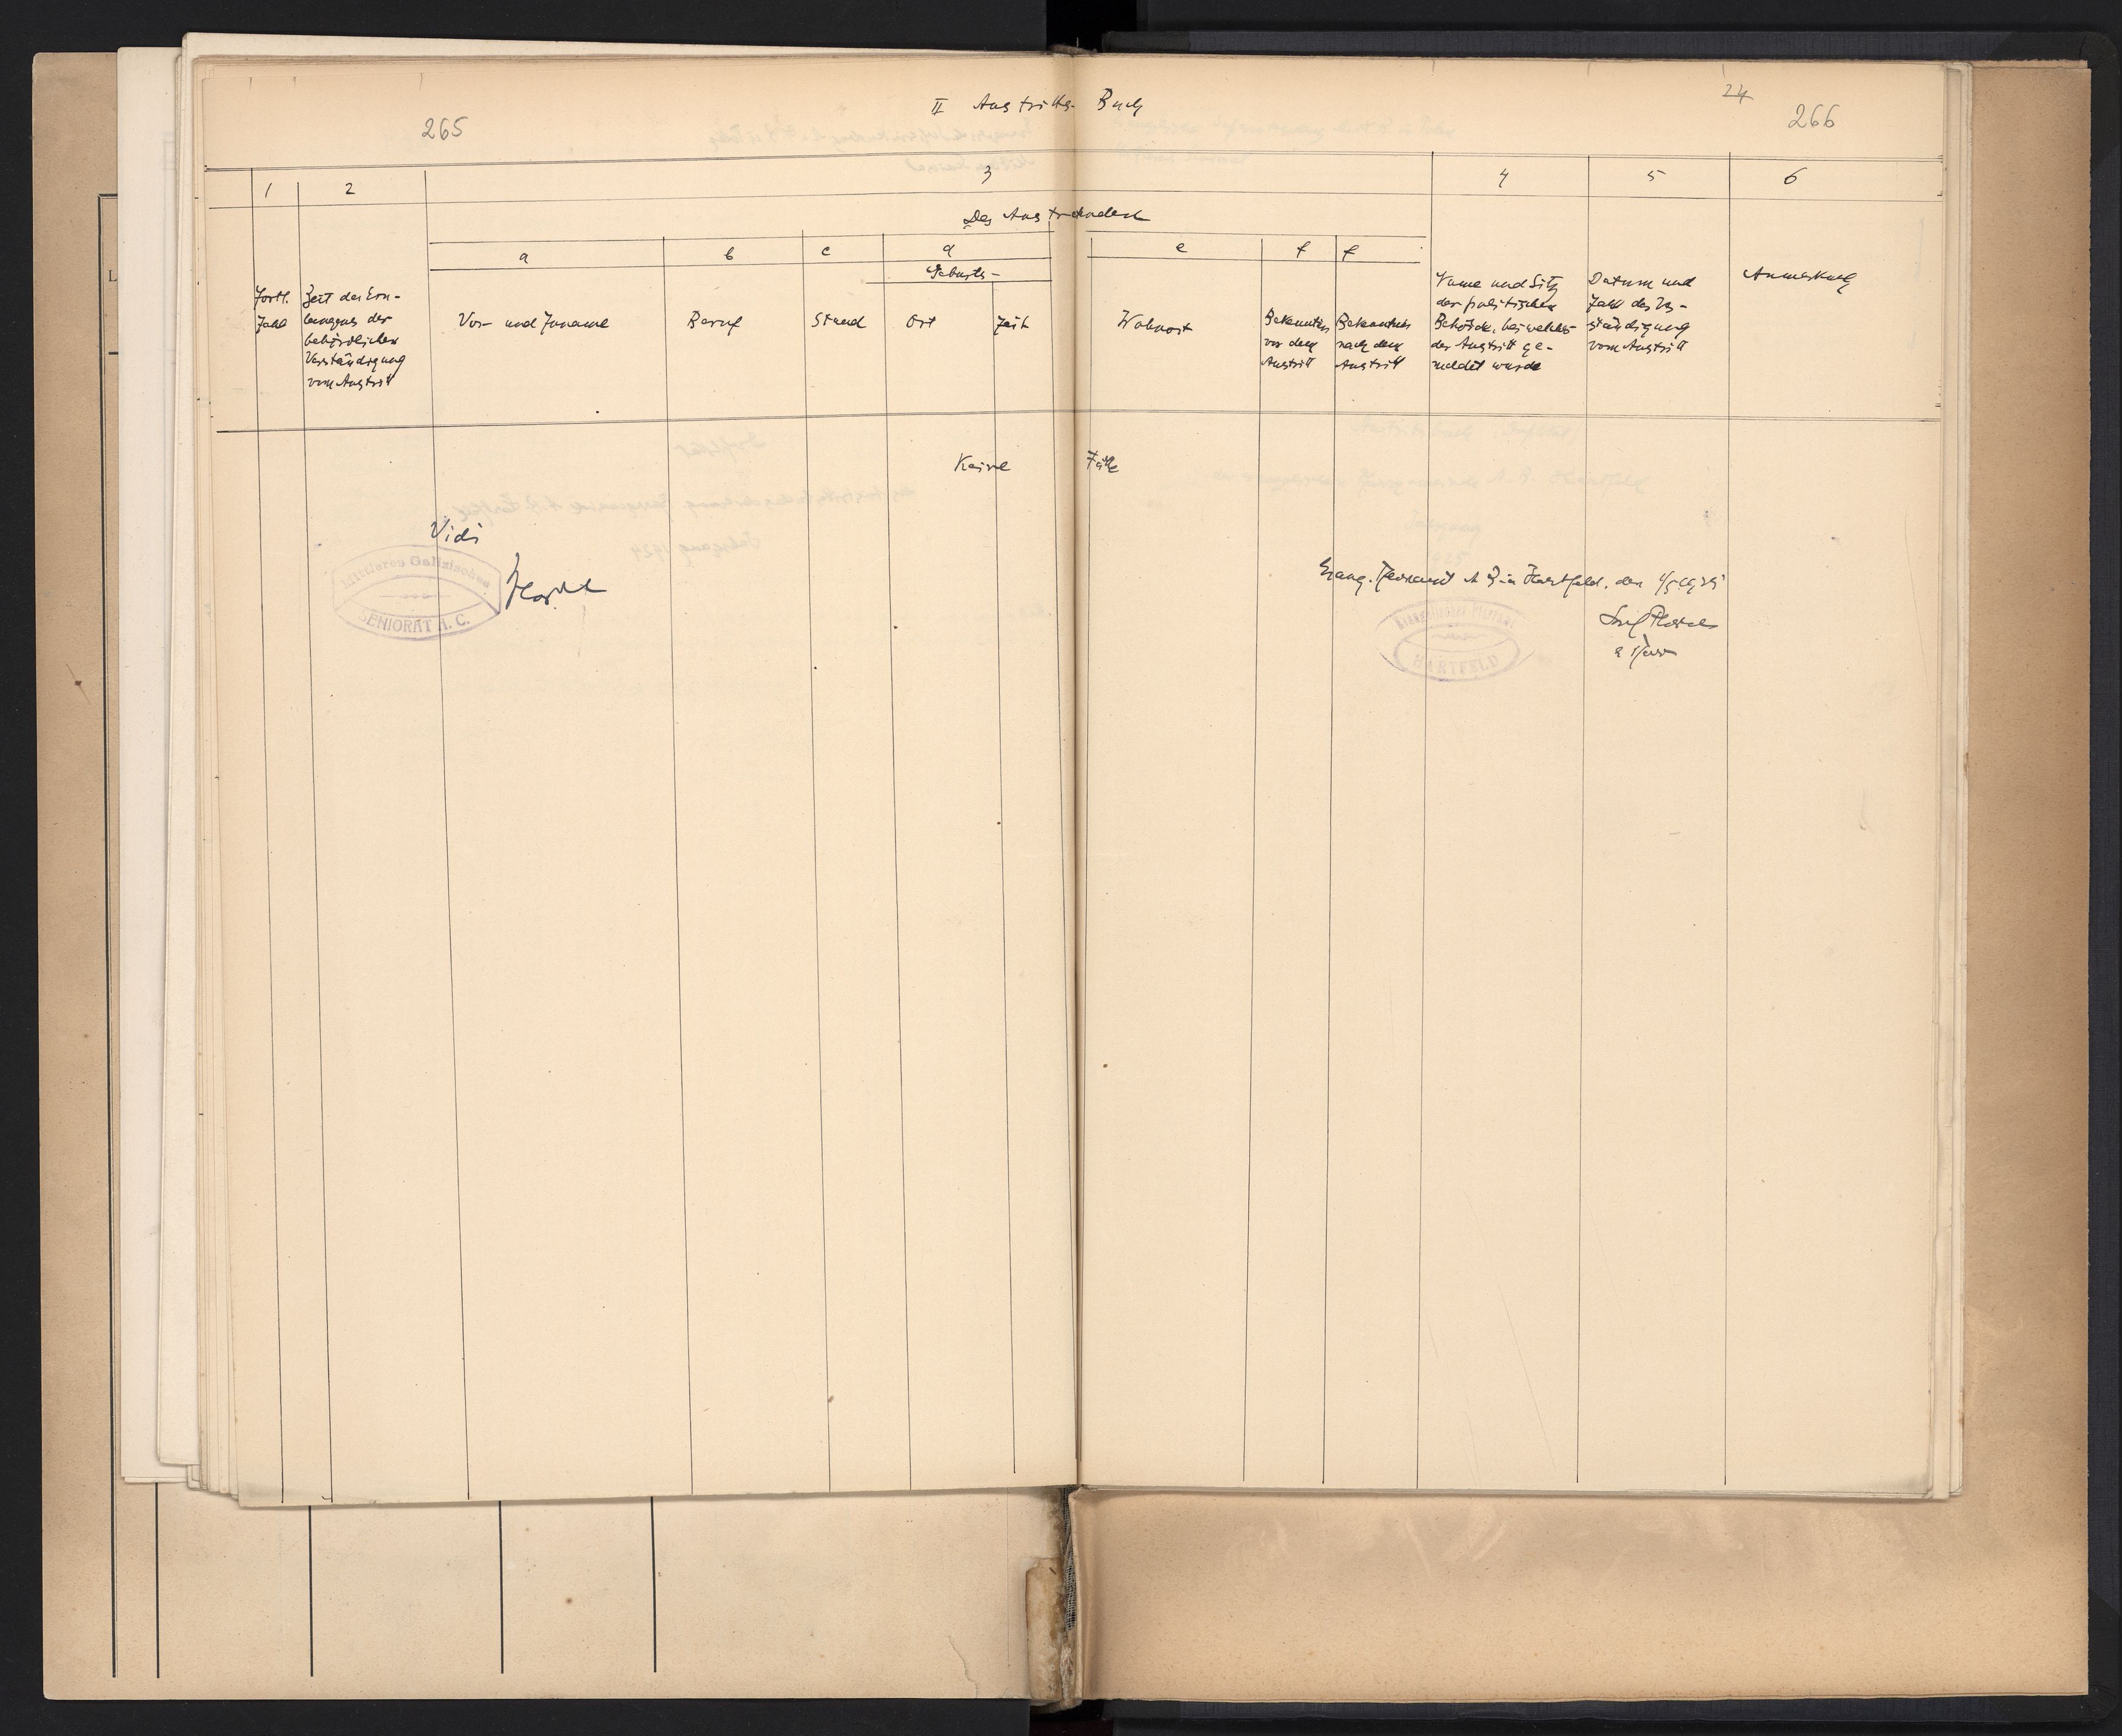 II Austritts- Buch
24
265
266
1
2
3
4
5
6
Des Austretenden
a
b
c
d
e
f
f
Geburts-
Fortl.
Zahl
Zeit des Ein-
langens der
behördlichen
Verständigung
vom Austritt
Vor- und Zuname
Beruf
Stand
Ort
Zeit
Wohnort
Bekenntnis
vor dem
Austritt
Bekenntnis
nach dem
Austritt
Name und Sitz
der politischen
Behörde, bei welcher
der Austritt ge-
meldet wurde
Datum und
Zahl der Ver-
ständigung
vom Austritt
Anmerkung
Keine Fälle
Vidi
Mittleres Galizisches
SENIORAT A. C.
Evang. Pfarramt A B in Hartfeld, den
Evangelisches Pfarramt
HARTFELD